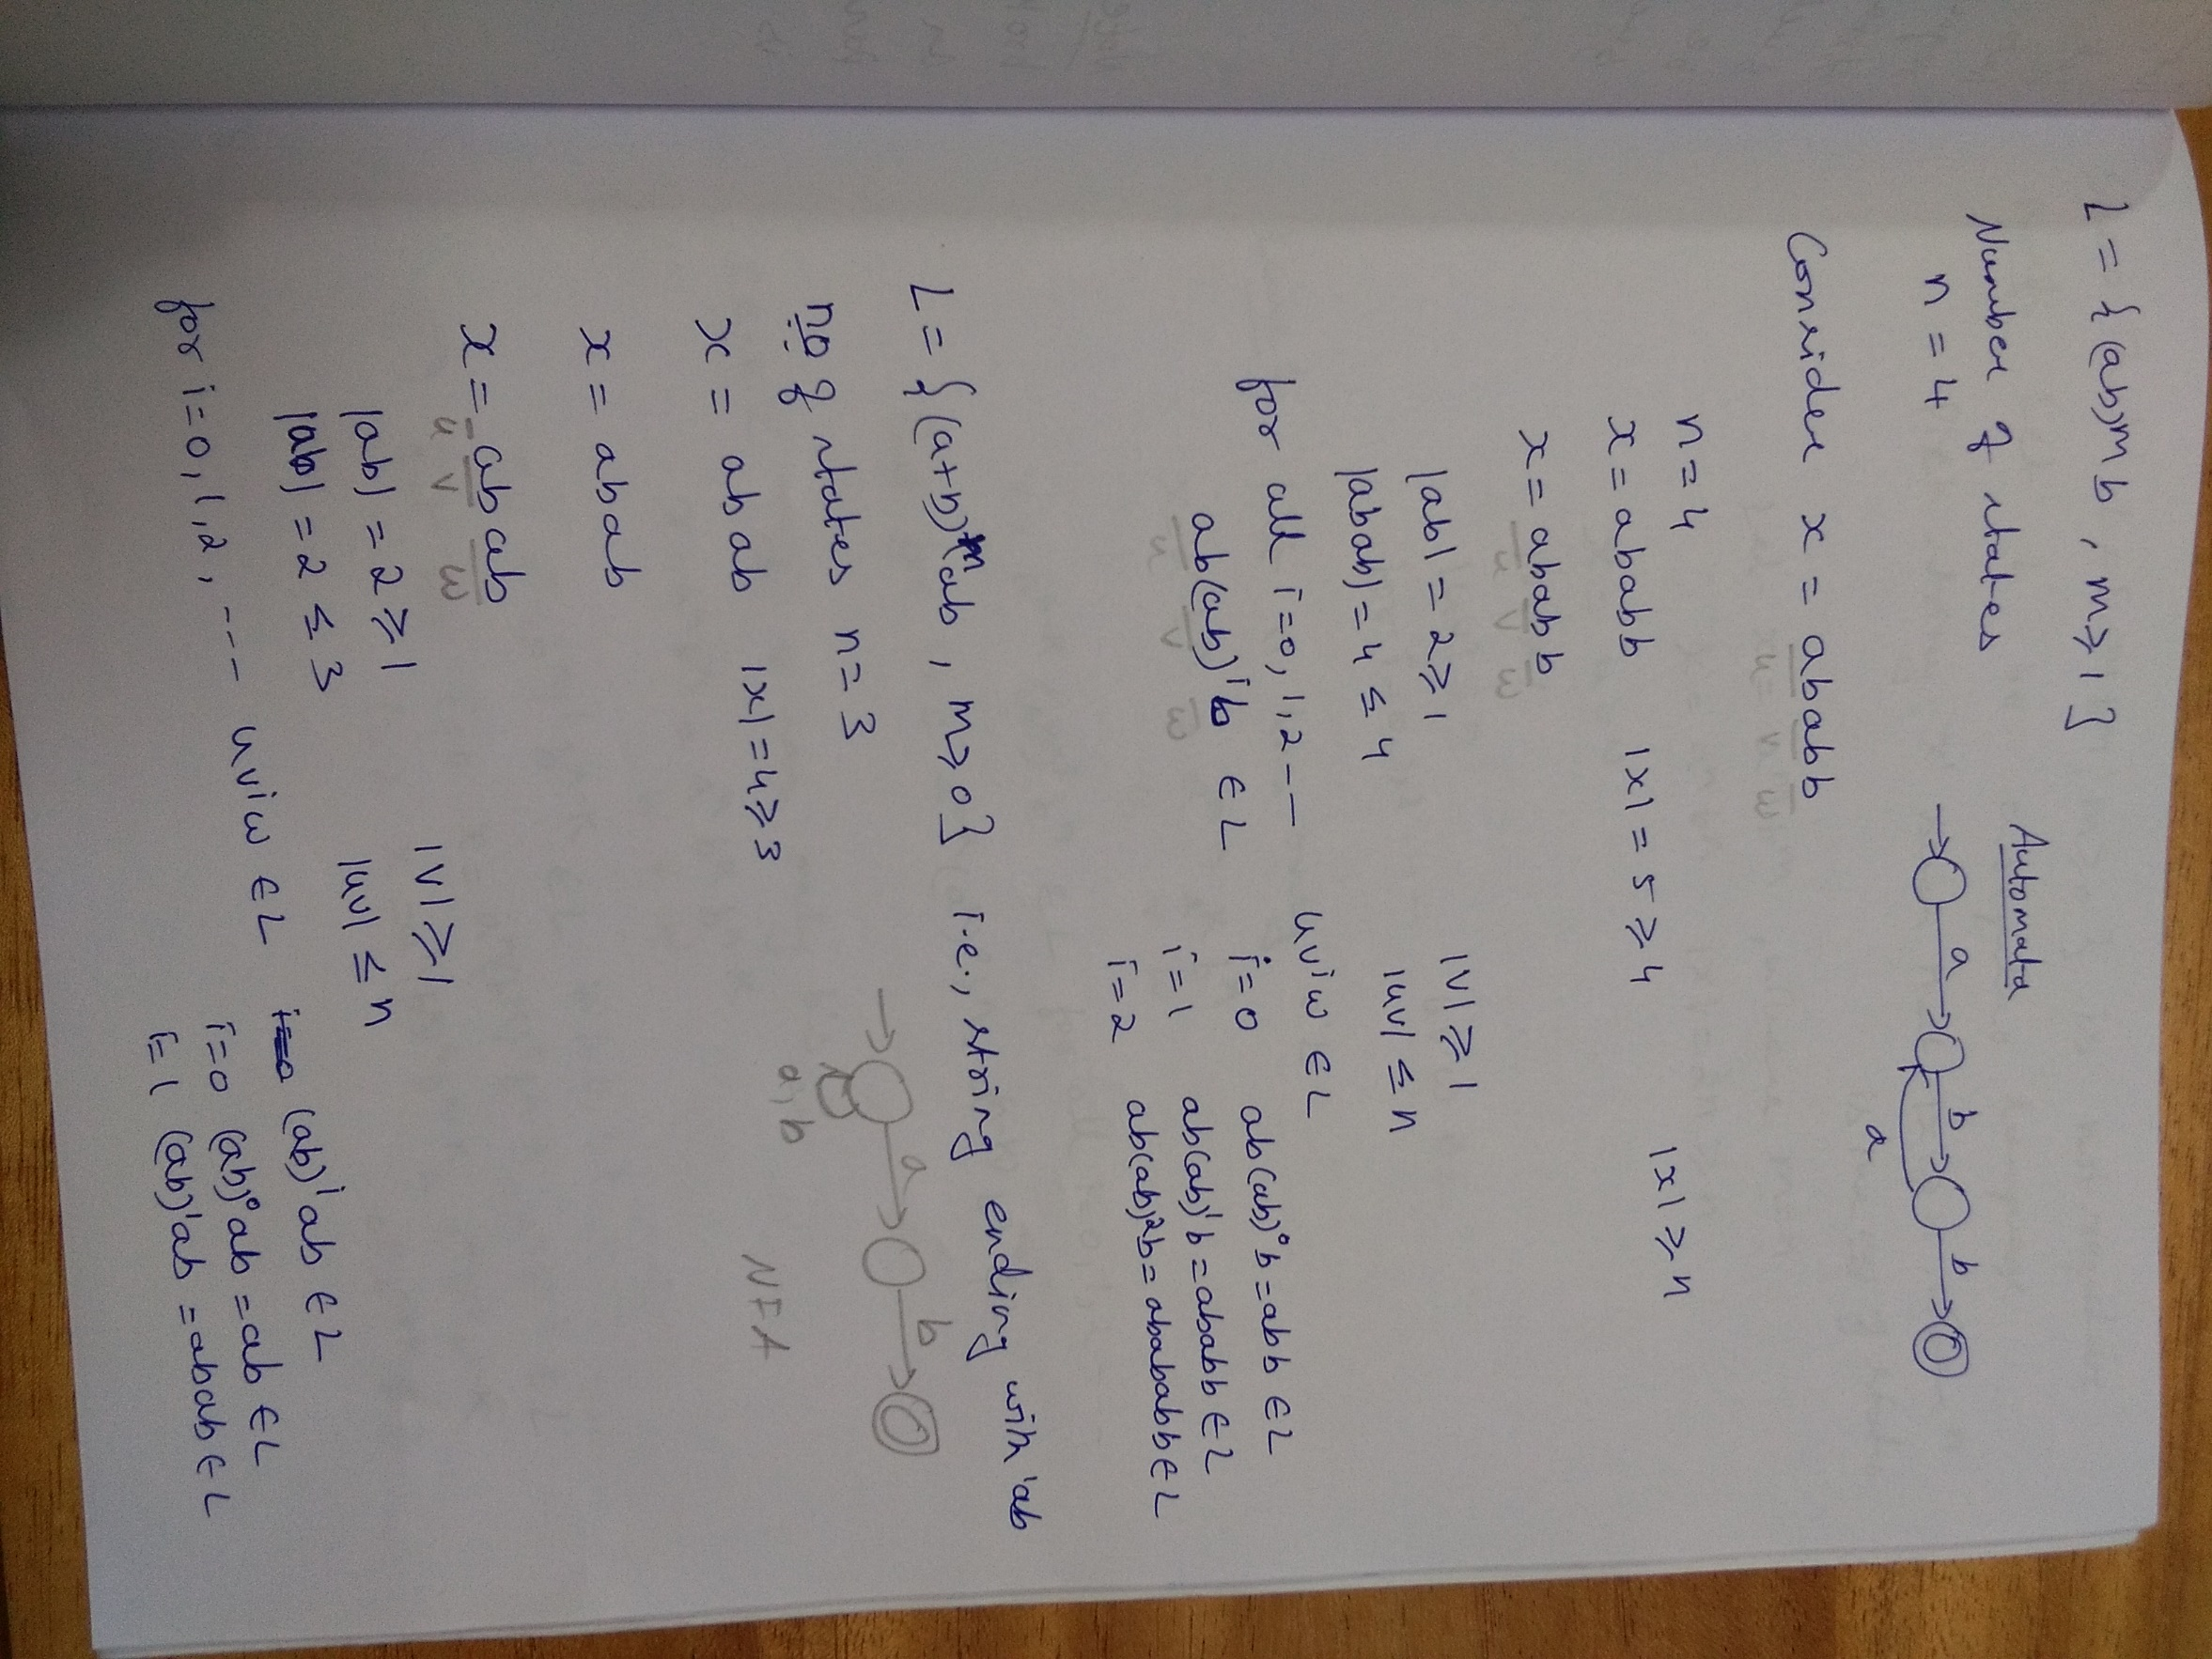 L = { (ab)^m b , m ≥ 1 }
Automata
Number of states
n = 4
a b b
a
Consider x = ababb
u v w
n = 4
|x| ≥ n
x = ababb |x| = 5 ≥ 4
x = ababb
u v w
|v| ≥ 1
|ab| = 2 ≥ 1
|uv| ≤ n
|abab| = 4 ≤ 4
for all i = 0, 1, 2 --- uv^i w ∈ L
ab(ab)^i b ∈ L
u v w
i = 0 ab(ab)^0 b = abb ∈ L
i = 1 ab(ab)^1 b = ababb ∈ L
i = 2 ab(ab)^2 b = abababb ∈ L
L = { (a+b)^m ab , m ≥ 0 } i.e., string ending with 'ab
no. of states n = 3
a b
a, b
NFA
x = abab |x| = 4 ≥ 3
x = abab
x = abab
u v w
|v| ≥ 1
|ab| = 2 ≥ 1
|uv| ≤ n
|ab| = 2 ≤ 3
for i = 0, 1, 2, --- uv^i w ∈ L
i=0 (ab)^i ab ∈ L
i = 0 (ab)^0 ab = ab ∈ L
i = 1 (ab)^1 ab = abab ∈ L